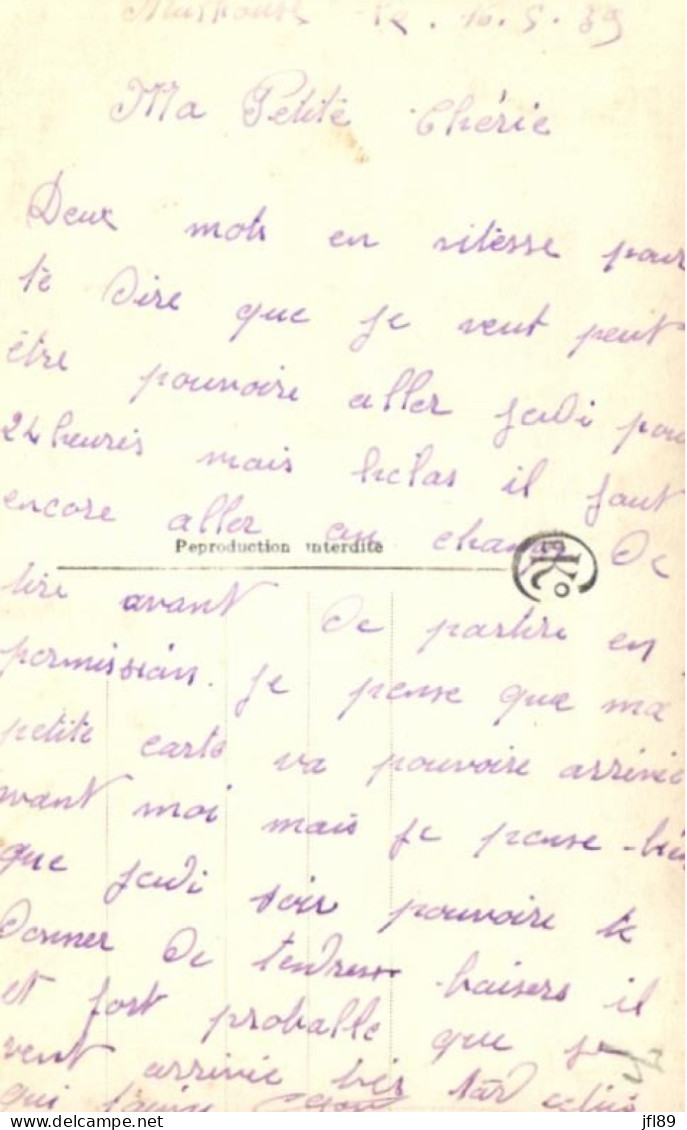 Mulhouse le . 16.5.39
Ma Petite Chérie
Deux mots en vitèsse pour
te dire que je veut peut
être pouvoire aller jeudi pour
24 heures mais hélas il faut
encore aller au champ de
Peproduction interdite
tire avant de partire en
permission. je pense que ma
petite carte va pouvoire arrivie
avant moi mais je pense bien
que jeudi soir pouvoire te
donner de tendres baisers il
et fort proballe que je
vent arrivie bis tard
qui
jfl89